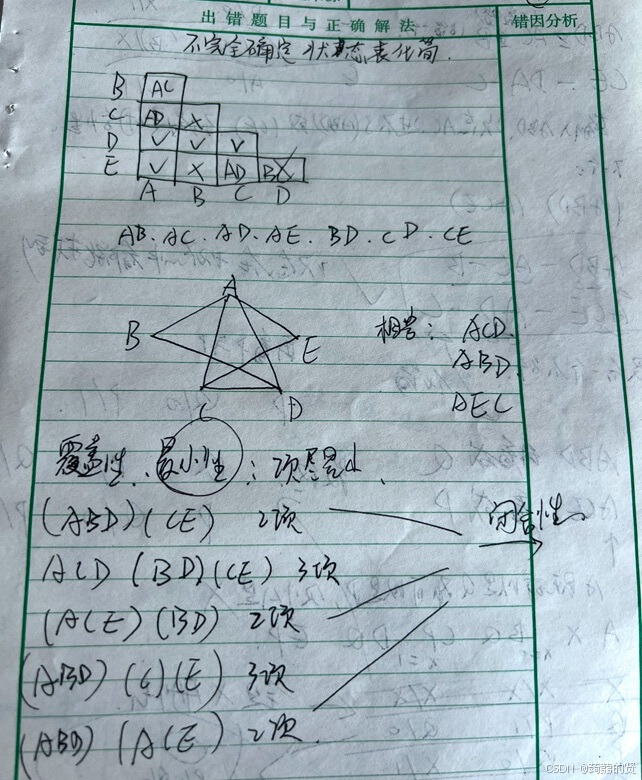 出错题目与正确解法 错因分析
不完全确定状态表化简.
B AC
C AD X
D V V V
E V X AD BX
A B C D
AB. AC. AD. AE. BD. CD. CE
A
B E
C D
相当: ACD.
ABD
AEC
覆盖性、最小性: 项尽量小.
(ABD)(CE) 2项
闭合性.
ACD (BD)(CE) 3项
(ACE)(BD) 2项
(ABD)(C)(E) 3项
(ABD)(ACE) 2项.
CSDN @蒟蒻的贤